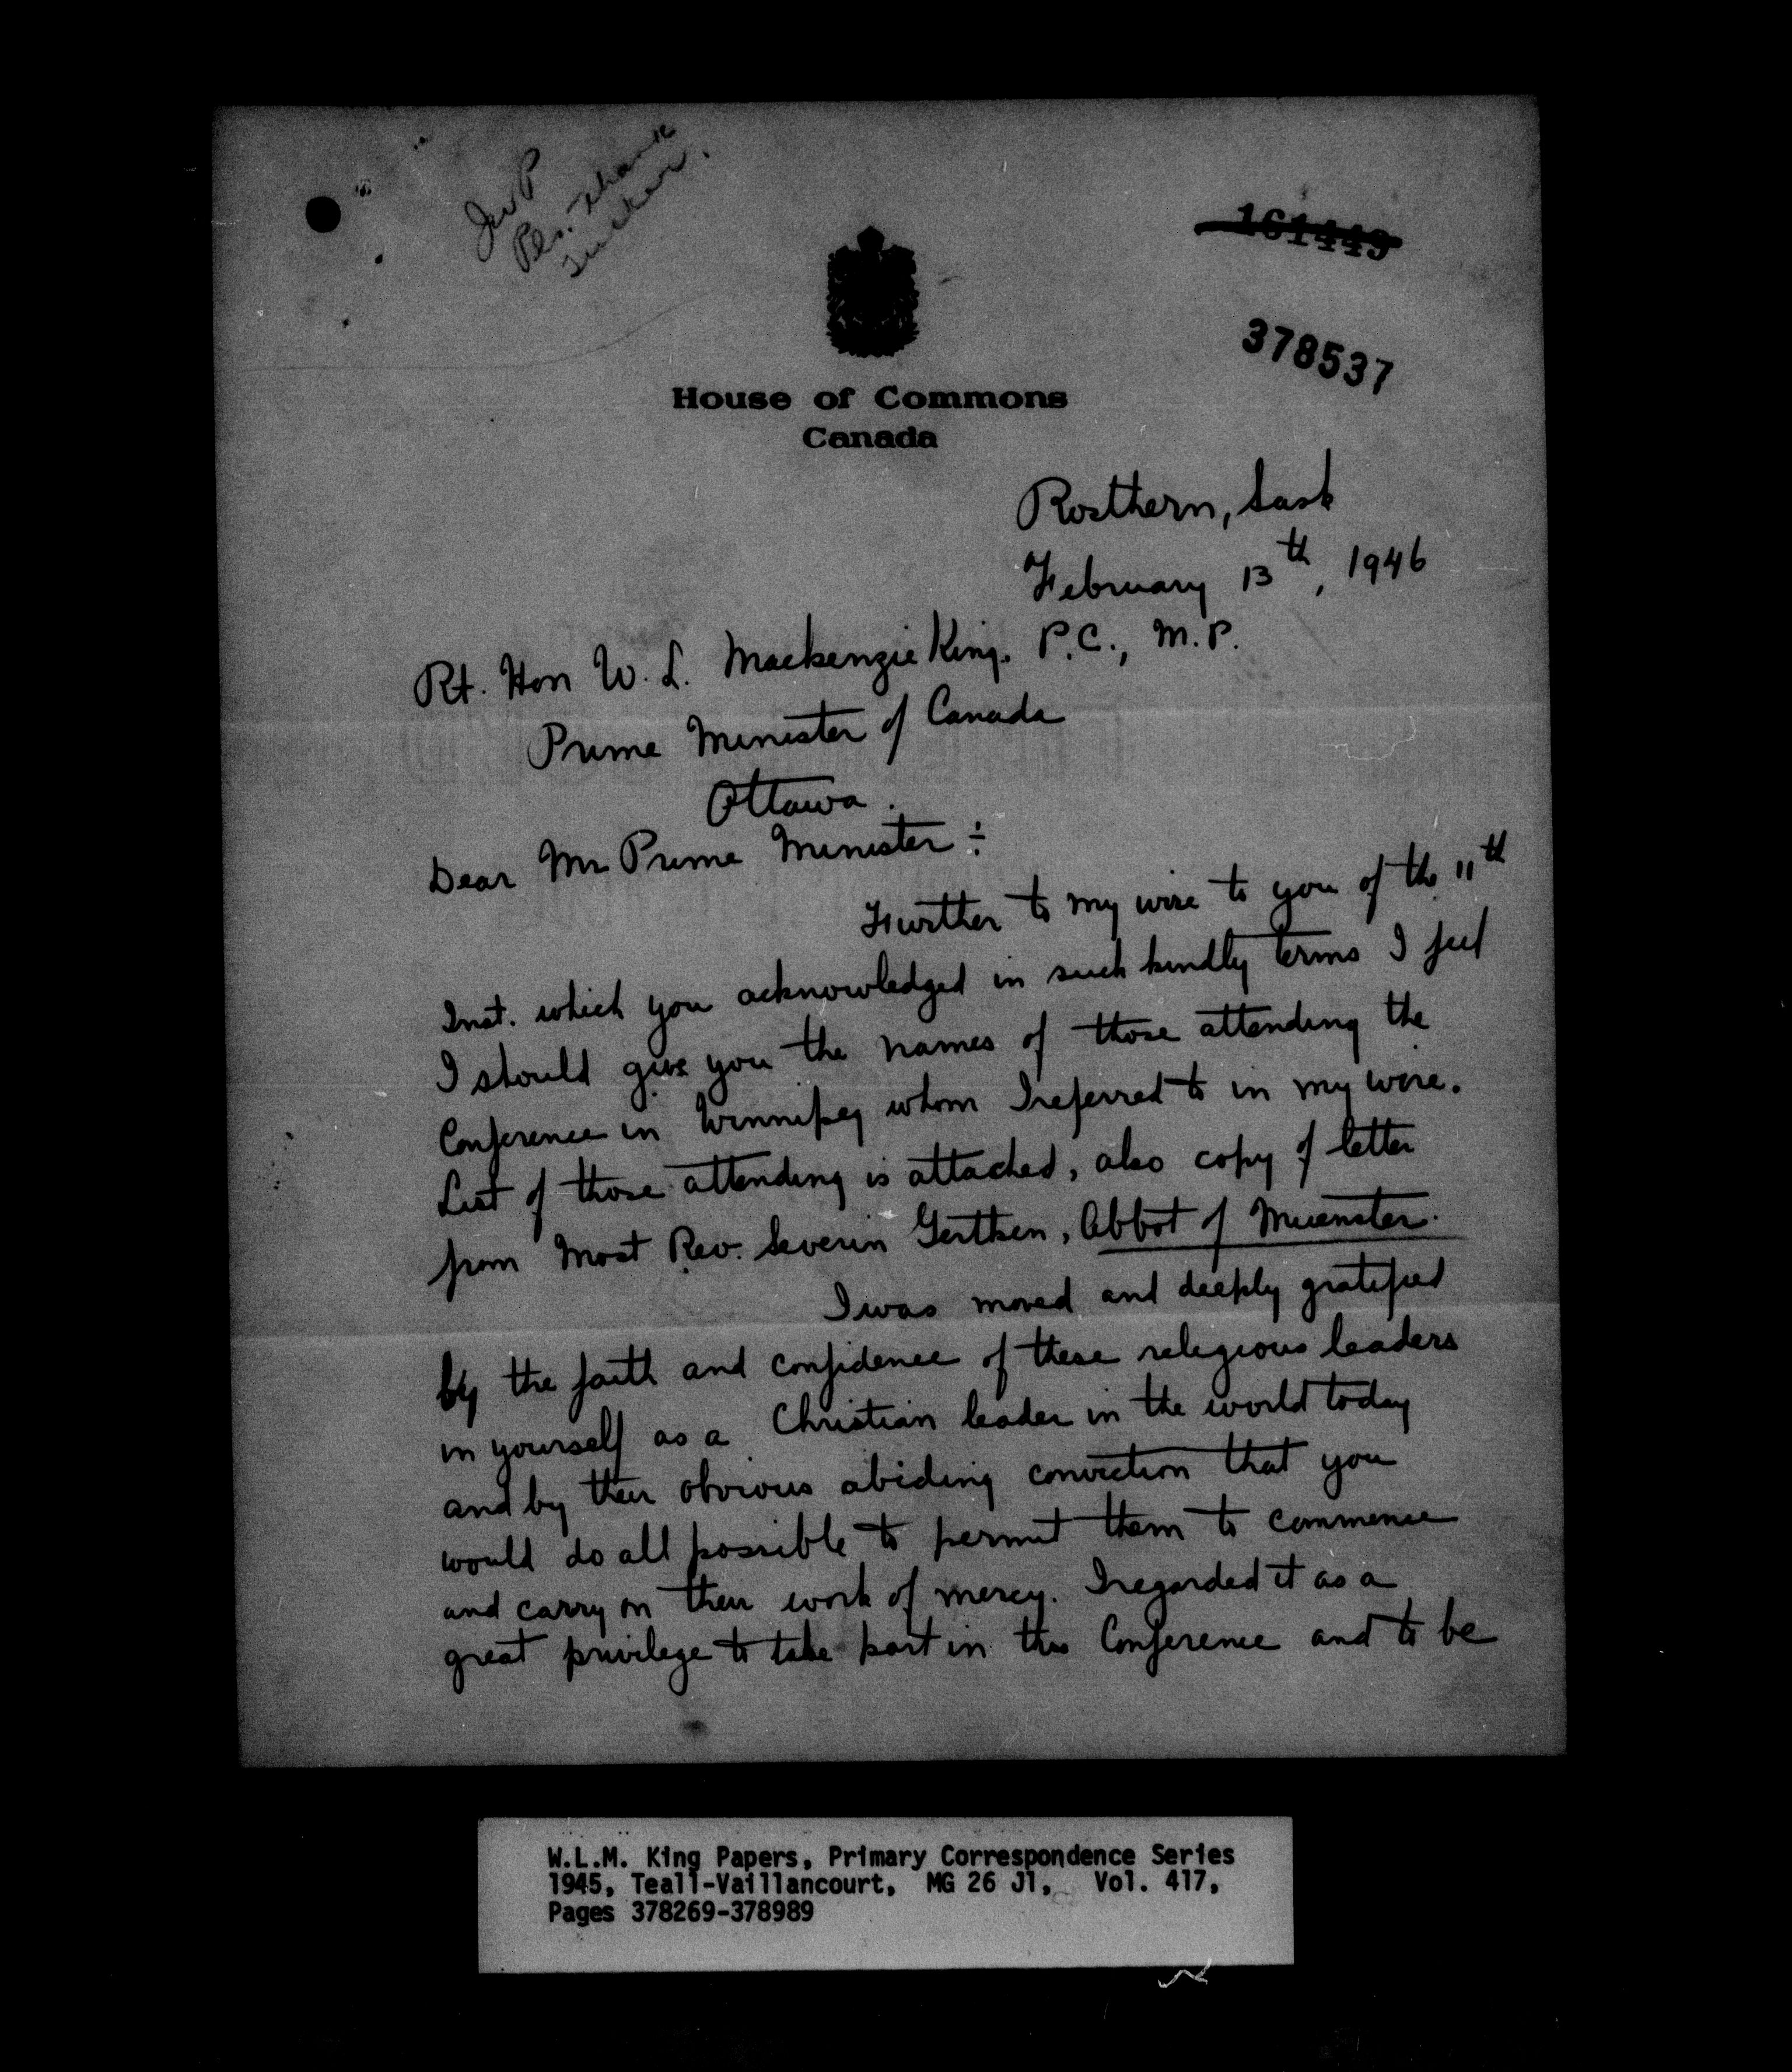 JWP
Pls. thank
Tucker.
161449
378537
House of Commons
Canada
Rosthern, Sask
February 13th, 1946
Rt. Hon W. L. Mackenzie King. P.C., M.P.
Prime Minister of Canada
Ottawa.
Dear Mr Prime Minister:
Further to my wire to you of the 11th
Inst. which you acknowledged in such kindly terms I feel
I should give you the names of those attending the
Conference in Winnipeg whom I referred to in my wire.
List of those attending is attached, also copy of letter
from Most Rev. Severin Gertken, Abbot of Muenster.
I was moved and deeply gratified
by the faith and confidence of these religious leaders
in yourself as a Christian leader in the world today
and by their obvious abiding conviction that you
would do all possible to permit them to commence
and carry on their work of mercy. I regarded it as a
great privilege to take part in this Conference and to be
W.L.M. King Papers, Primary Correspondence Series
1945, Teall-Vaillancourt, MG 26 J1, Vol. 417,
Pages 378269-378989